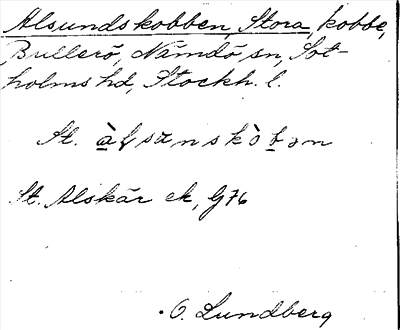 Alsundskobben, Stora, kobbe,
Bullerö, Nämdö sn, Sot-
holms hd, Stockh. l.
St. àḷsɑnskòbən
St. Alskär ek, G76
O. Lundberg